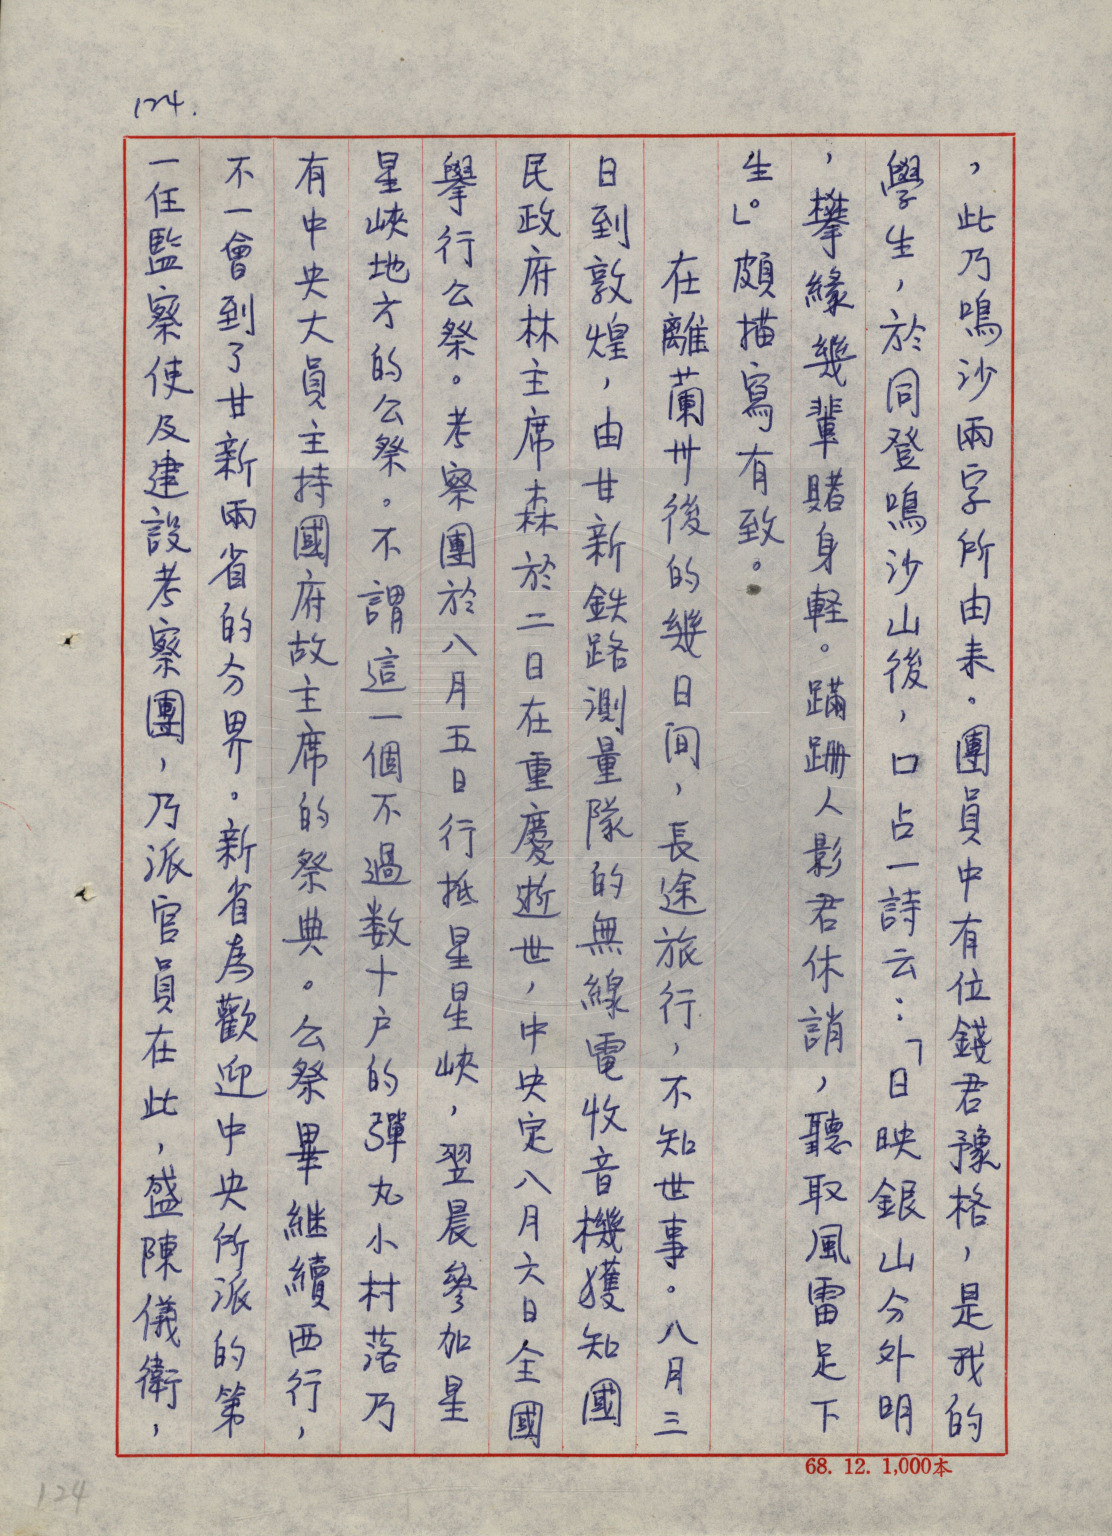 124.
，此乃鳴沙兩字所由来。團員中有位錢君豫格，是我的
學生，於同登鳴沙山後，口占一詩云：「日映銀山分外明
，攀緣幾輩賭身軽。蹣跚人影君休誚，聽取風雷足下
生。」頗描寫有致。
在離蘭州後的幾日间，長途旅行，不知世事。八月三
日到敦煌，由甘新鉄路測量隊的無線電收音機獲知國
民政府林主席森於二日在重慶逝世，中央定八月六日全國
舉行公祭。考察團於八月五日行抵星星峽，翌晨參加星
星峽地方的公祭。不謂這一個不過数十户的彈丸小村落乃
有中央大員主持國府故主席的祭典。公祭畢継續西行，
不一會到了甘新兩省的分界。新省為歡迎中央所派的第
一任監察使及建設考察團，乃派官員在此，盛陳儀衛，
68. 12. 1,000本
124